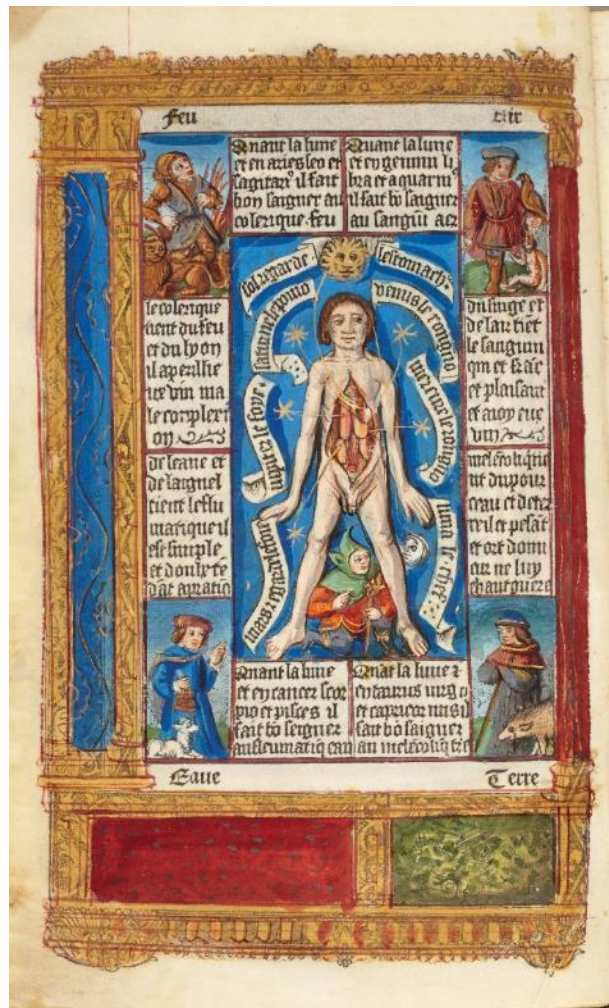 Feu
Air
Quant la lune
et en aries leo et
sagitari⁹ il fait
bon saigner au
colerique feu
Quant la lune
et en gemini li
bra et aquarius
il fait bō saigner
au sanguī aer
sol regarde
lestomach
saturne le pomō
venus le rongnō
iupiter le foye
mercure le rongnō
mars regarde
luna le chef
le colerique
tient du feu
et du lyon
il a
ue vin ma
le complexi
on
du singe et
de lair tiēt
le sanguin
et plaisant
et
vin
de leaue et
de laignel
tient le flu
matique il
est simple
et
melēcoliq̄ tiē
nt du pour
ceau et de ter
re il et pesāt
et
ne luy
chaut guere
Quant la lune
et en cancer scor
pio et pisces il
fait bō seigner
au fleumatiq̄ eau
Quāt la lune ē
en taurus virgo
et capricornus il
fait bō saigner
au melēcoliq̄ t̄re
Eaue
Terre